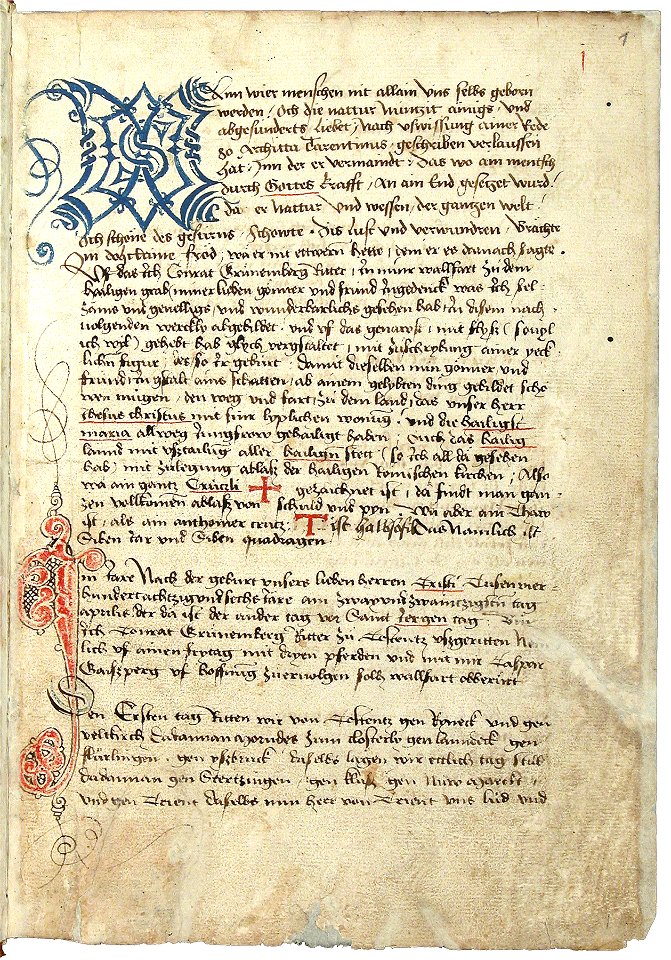 1
Wann wier menschen nit allain uns selbs geborn
werden / Och die nattur nüntzit ainigs und
abgesunderts liebet / nach uswissung ainer rede
so Architta Tarentinus geschriben verlaussen
hat · Inn der er vermandt · Das wo am mentsch
durch Gottes krafft / An am End gesetzet wurd /
Da er nattur und wessen / der gantzen welt /
Och schöne des gestirns / schowte · Dis lust und verwundren / Brächte
im doch klaine fröd / wa er nit ettwern hette / dem er es danach sagte ·
Uff das ich Conrat Grünemberg Ritter / in miner wallfart zu dem
hailigen grab / miner lieben gönner und fründ Ingedenck was ich sel-
zams und gevelligs / und wunderbarlichs gesehen hab / in disem nach-
volgenden werckly abgebildet · und uf das genawest / mit flyss / souyl
ich wyl / gehebt hab glych vergstaltet / mit zuschrybung ainer yeck-
lichen figur / des / so ir gebürt · damit dieselben min gönner und
fründ in gstalt ains schatten / ab ainem gelybten ding gebildet sche-
wen mügen / den weg und fart / zu dem land / das unser herr
Jhesus christus mit sinr lyplichen wonung · und die hailigst
maria allweg Jungfraw gehailigt haben / Ouch das hailig
lannd mit ustailung aller hailigen stett / so ich all da gesehen
hab / mit zulegung ablass der hailigen Römischen kirchen / Also
wa am gantz Crützli + gezaichnet ist / da findt man gan-
zen vollkomnen ablass von schuld und pyn · Wa aber am Thaw
ist / als am anthonier crütz · T ist halbs Das Namlich ist
Siben iar und Siben quadragen
Im iare Nach der geburt unsers lieben herren Cristi Tusenvier-
hundertachtzigundsechs iare am zwayundzwaintzigsten tag
aprilis / der da ist der ander tag vor Sannt Jergen tag · Bin
ich Conrat Grünemberg Ritter zu Costentz usgeritten Nem-
lich uf ainen frytag mit dryen pferden und mit mir Caspar
Gaissperg uf hoffnung zuervolgen solh wallfart obberürt
Den Ersten tag Ritten wir von Costentz gen Ryneck und gen
veltkirch Dadannan Morndes zum closterly gen lanndeck / gen
flürlingen · gen ysbruck · daselbs lagen wir ettlich tag still
dadannan gen Stertzingen / gen kluss / gen Nüw marckt /
und gen Trient daselbs min herr von Trient uns lüd und